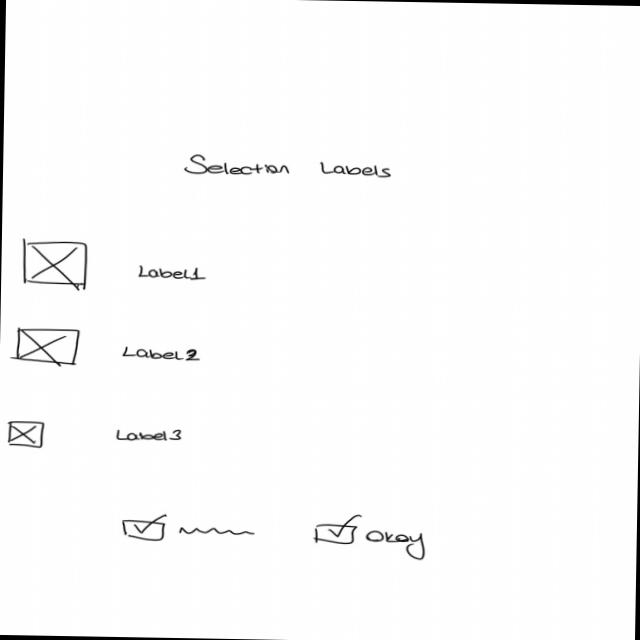 Selection Labels
Label1
Label2
Label3
Okay